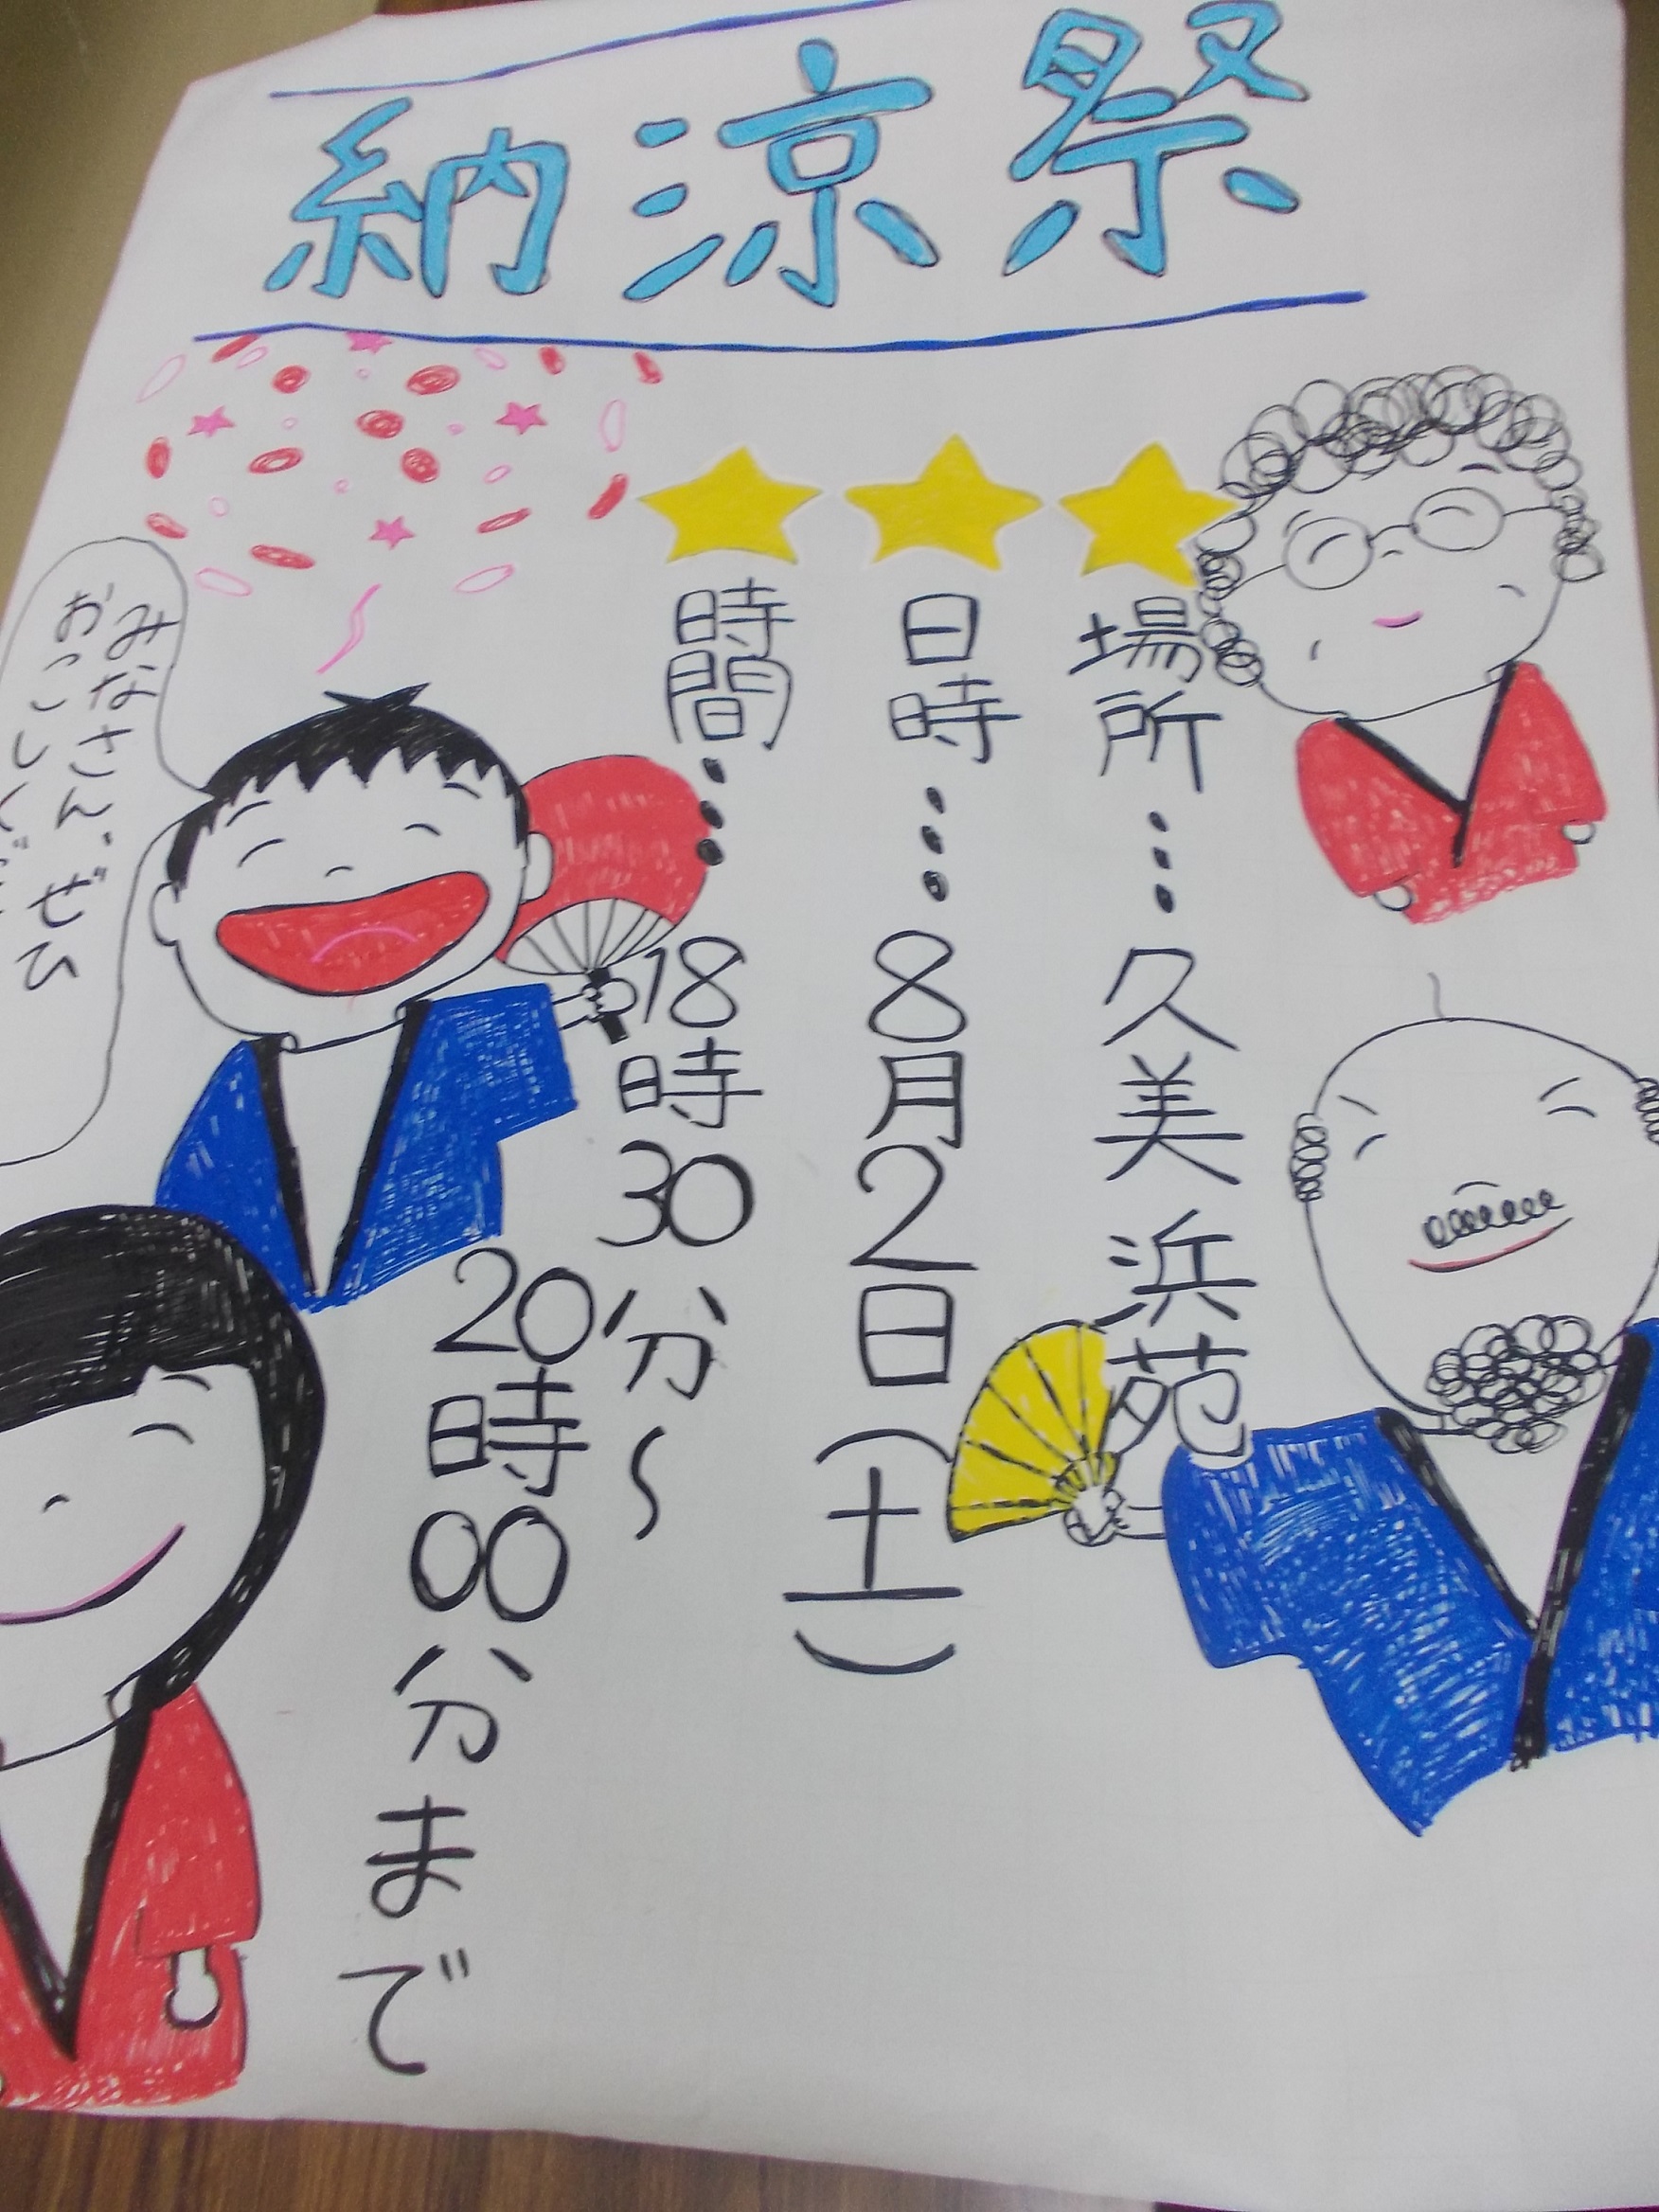 納涼祭
場所…久美浜苑
日時…8月2日(土)
時間…18時30分〜
20時00分まで
みなさん、ぜひ
おこしくだ